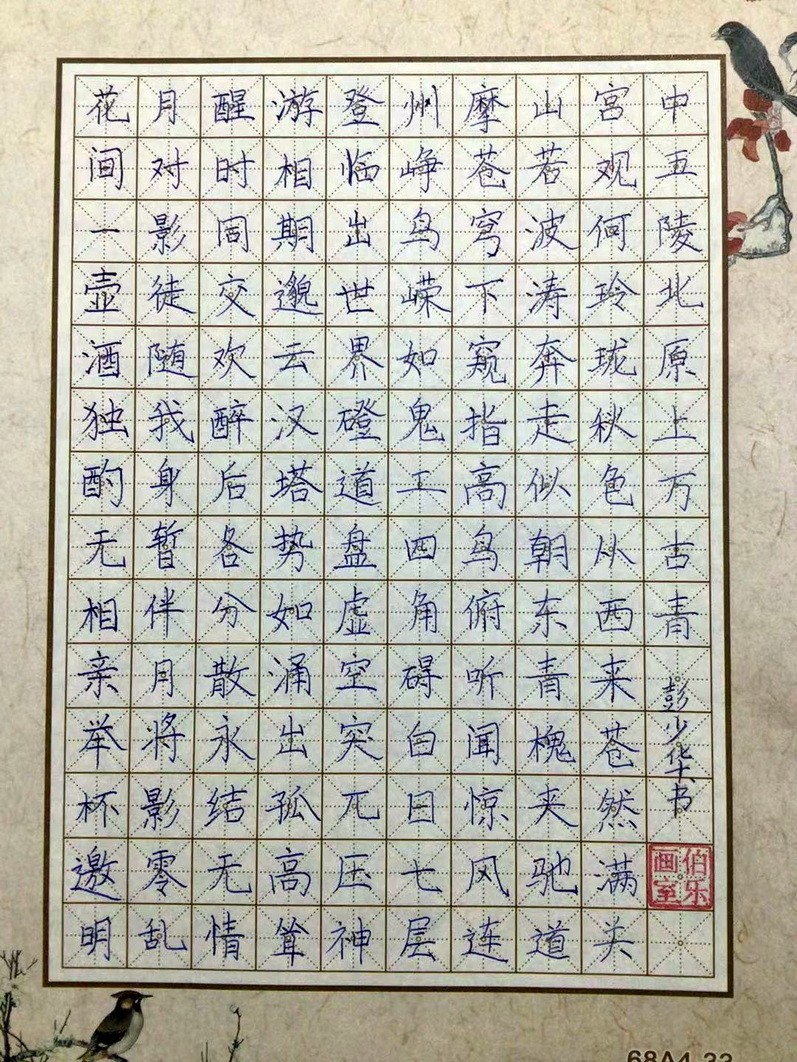 花间一壶酒独酌无相亲举杯邀明
月对影徒随我身暂伴月将影零乱
醒时同交欢醉后各分散永结无情
游相期邈云汉塔势如涌出孤高耸
登临出世界磴道盘虚空突兀压神
州峥鸟嵘如鬼工四角碍白日七层
摩苍穹下窥指高鸟俯听闻惊风连
山若波涛奔走似朝东青槐夹驰道
宫观何玲珑秋色从西来苍然满关
中五陵北原上万古青
彭少华书
伯乐画室